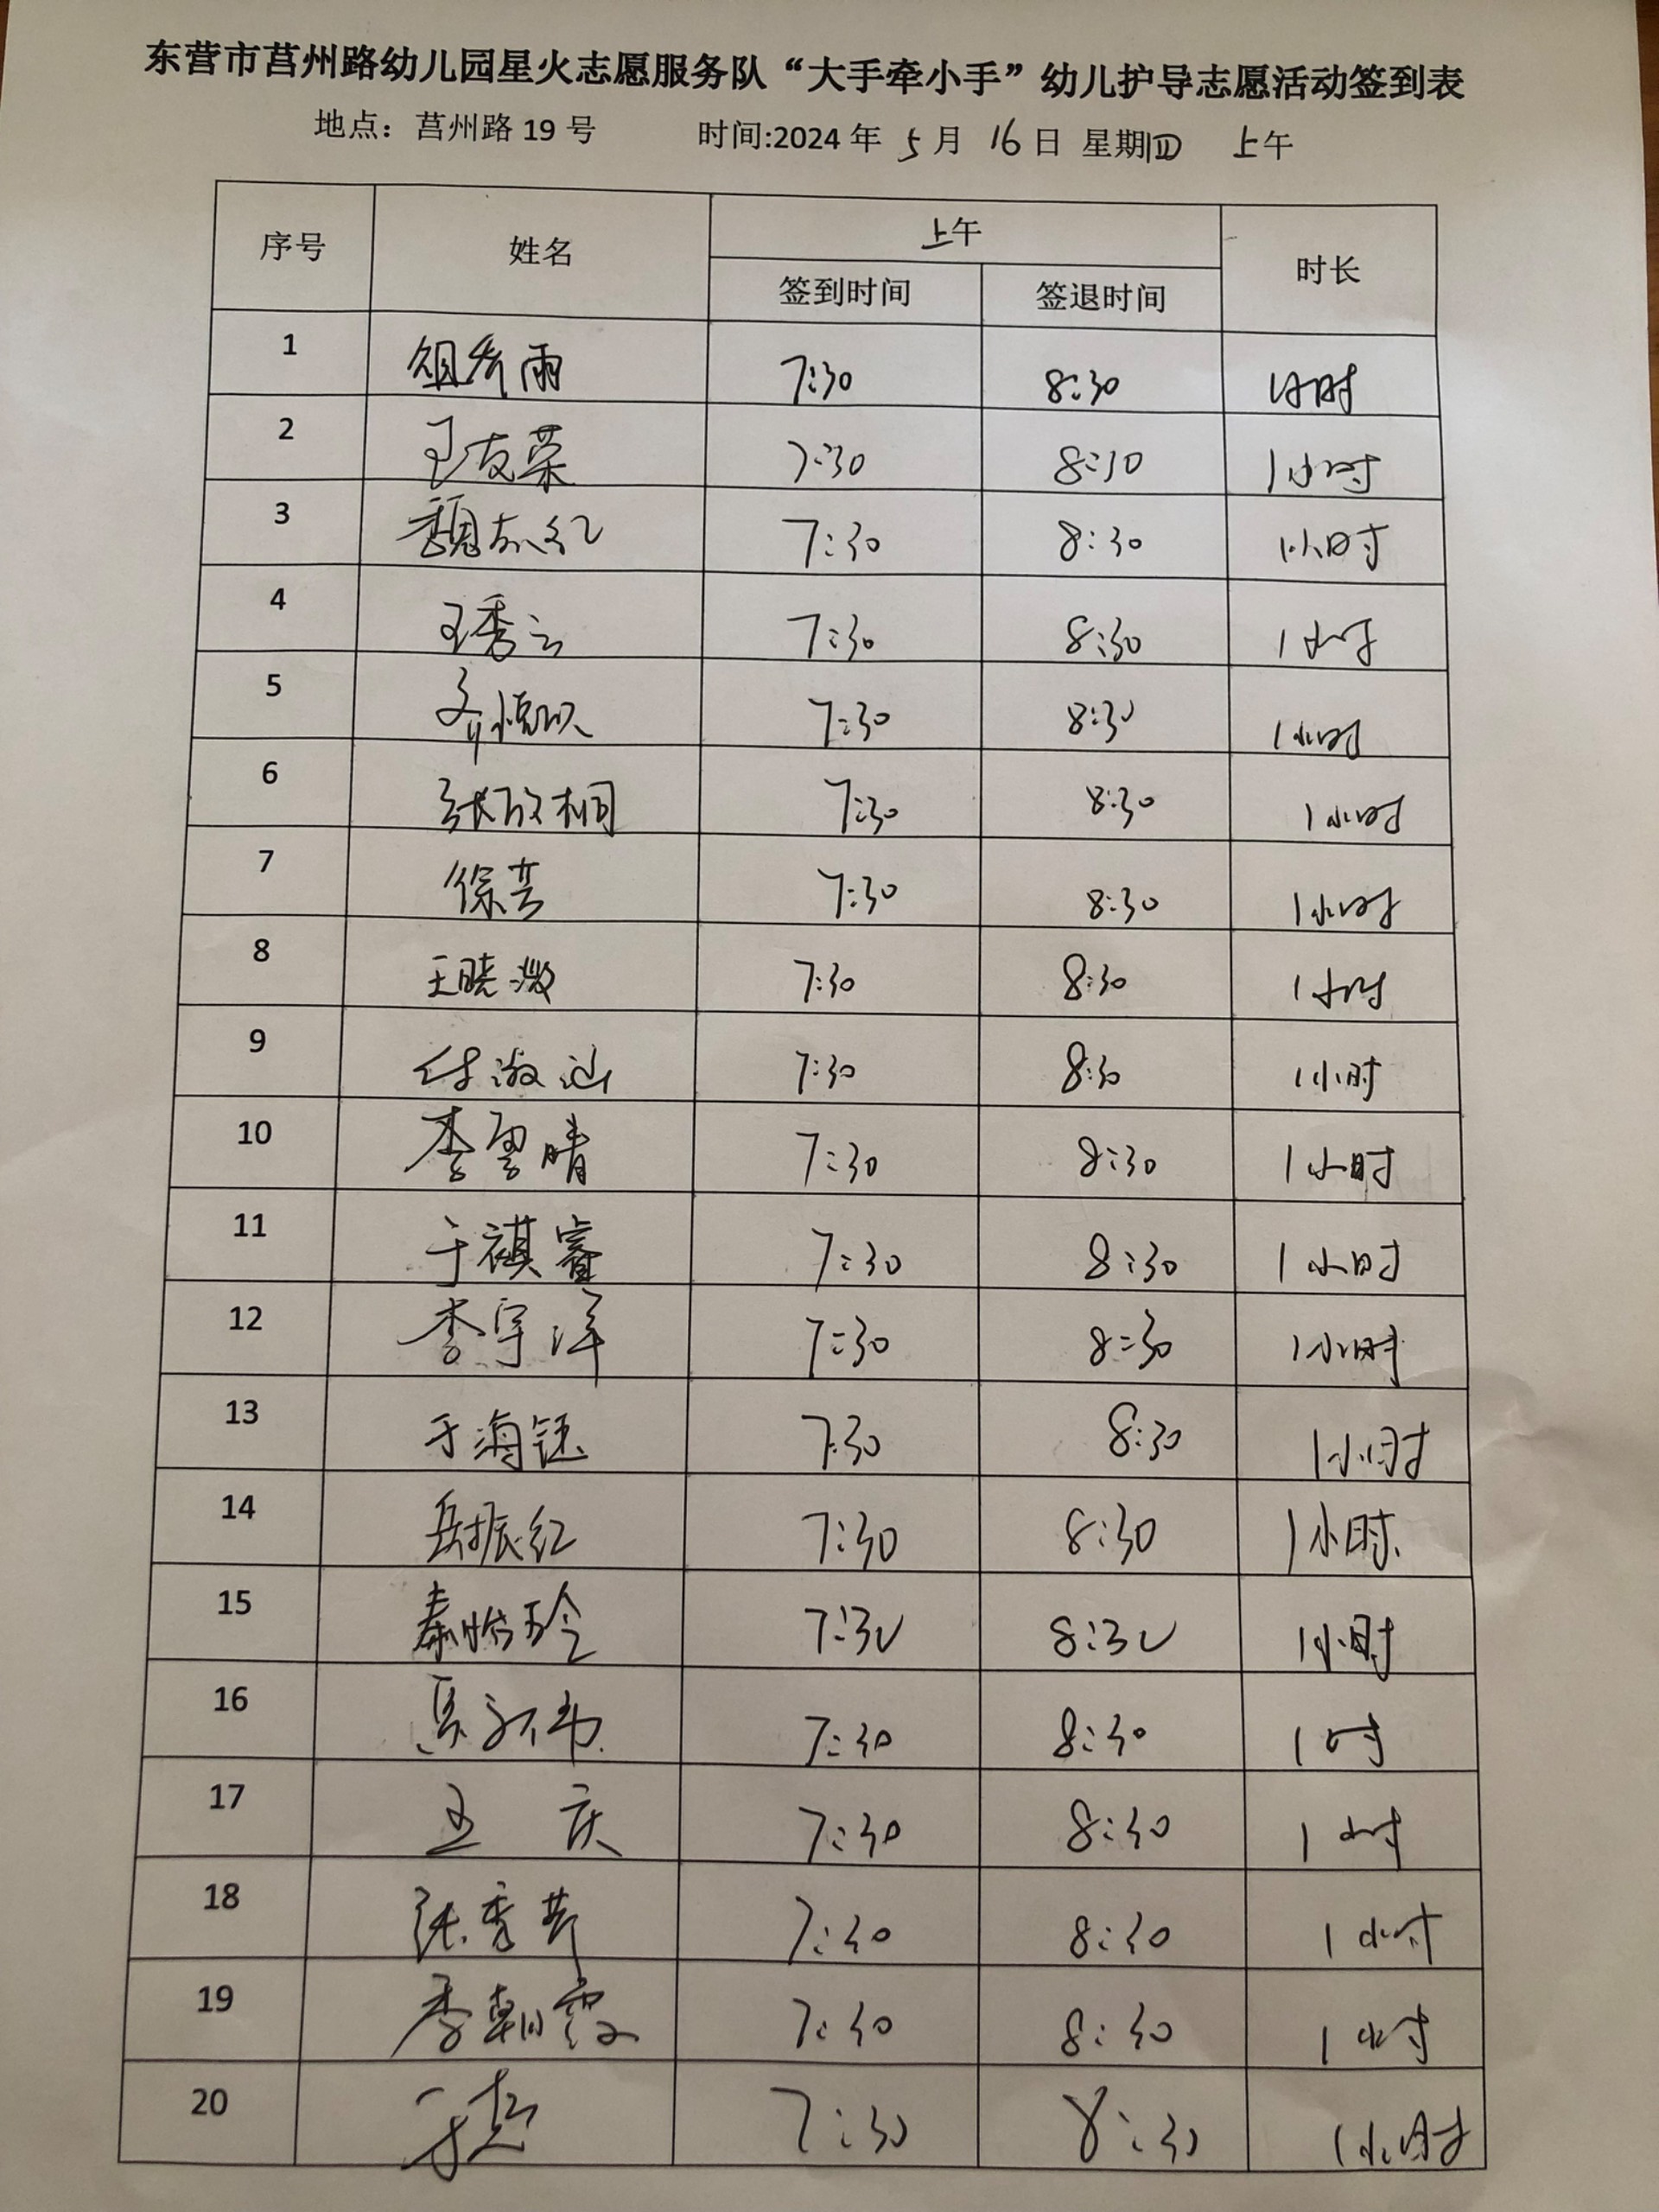 东营市莒州路幼儿园星火志愿服务队“大手牵小手”幼儿护导志愿活动签到表
地点：莒州路 19 号 时间:2024 年 5 月 16 日 星期四 上午
序号 姓名 上午 时长
签到时间 签退时间
1 雨 7:30 8:30 1小时
2 王友荣 7:30 8:30 1小时
3 魏志红 7:30 8:30 1小时
4 王秀云 7:30 8:30 1小时
5 7:30 8:30 1小时
6 张改桐 7:30 8:30 1小时
7 徐芸 7:30 8:30 1小时
8 王晓潋 7:30 8:30 1小时
9 付 7:30 8:30 1小时
10 李雲晴 7:30 8:30 1小时
11 于祺睿 7:30 8:30 1小时
12 李宇洋 7:30 8:30 1小时
13 于海钰 7:30 8:30 1小时
14 岳振红 7:30 8:30 1小时
15 秦怡玲 7:30 8:30 1小时
16 7:30 8:30 1时
17 王庆 7:30 8:30 1小时
18 张秀芹 7:30 8:30 1小时
19 李朝霞 7:30 8:30 1小时
20 7:30 8:30 1小时